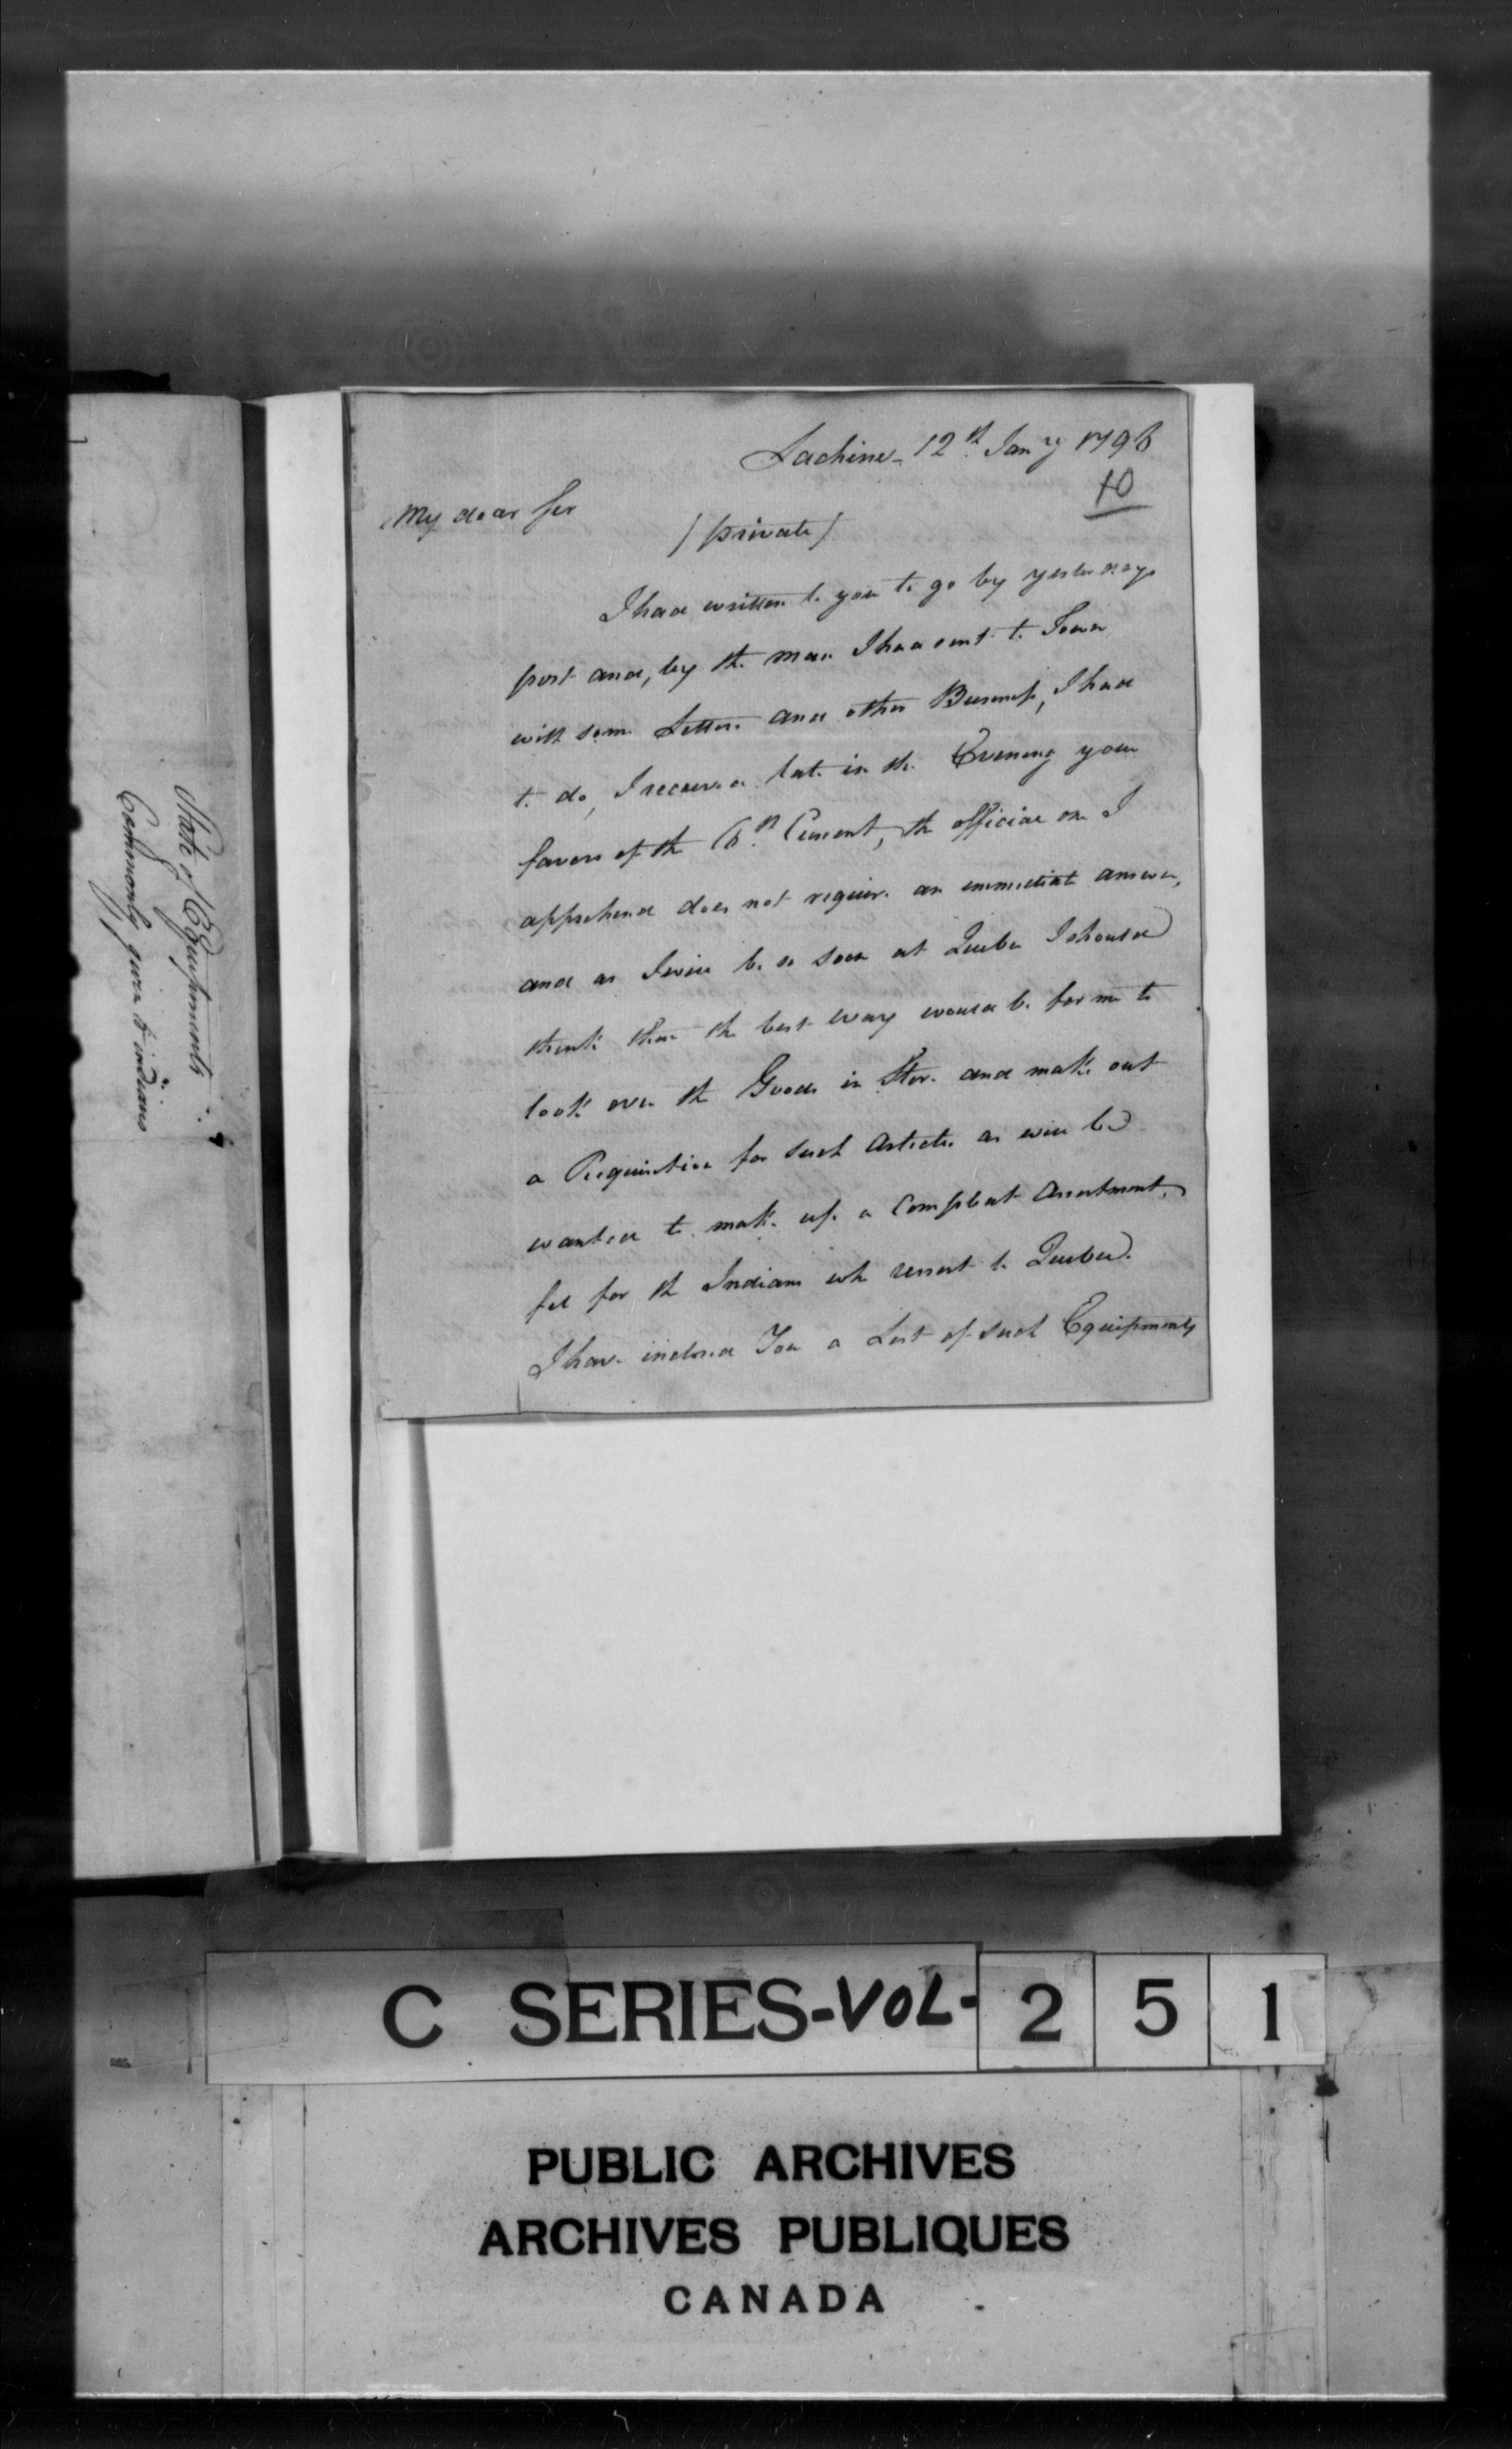 State of Equipments
Commonly given to indians
Lachine - 12th Jany 1798
10
My dear Sir
/private/
I had written to you to go by yesterdays
post and, by the man I had sent to Town
with some Letters and other Business, I had
to do, I received late in the Evening your
favors of the Current, the official one I
apprehend does not require an immediate answer,
and as I will be so soon at Quebec I should
think that the best way would be for me to
look over the Goods in Store and make out
a Requisition for such Articles as will be
wanted to make up a Compleat Assortment,
fit for the Indians who resort to Quebec.
I have inclosed You a List of such Equipments
C SERIES-VOL-251
PUBLIC ARCHIVES
ARCHIVES PUBLIQUES
CANADA